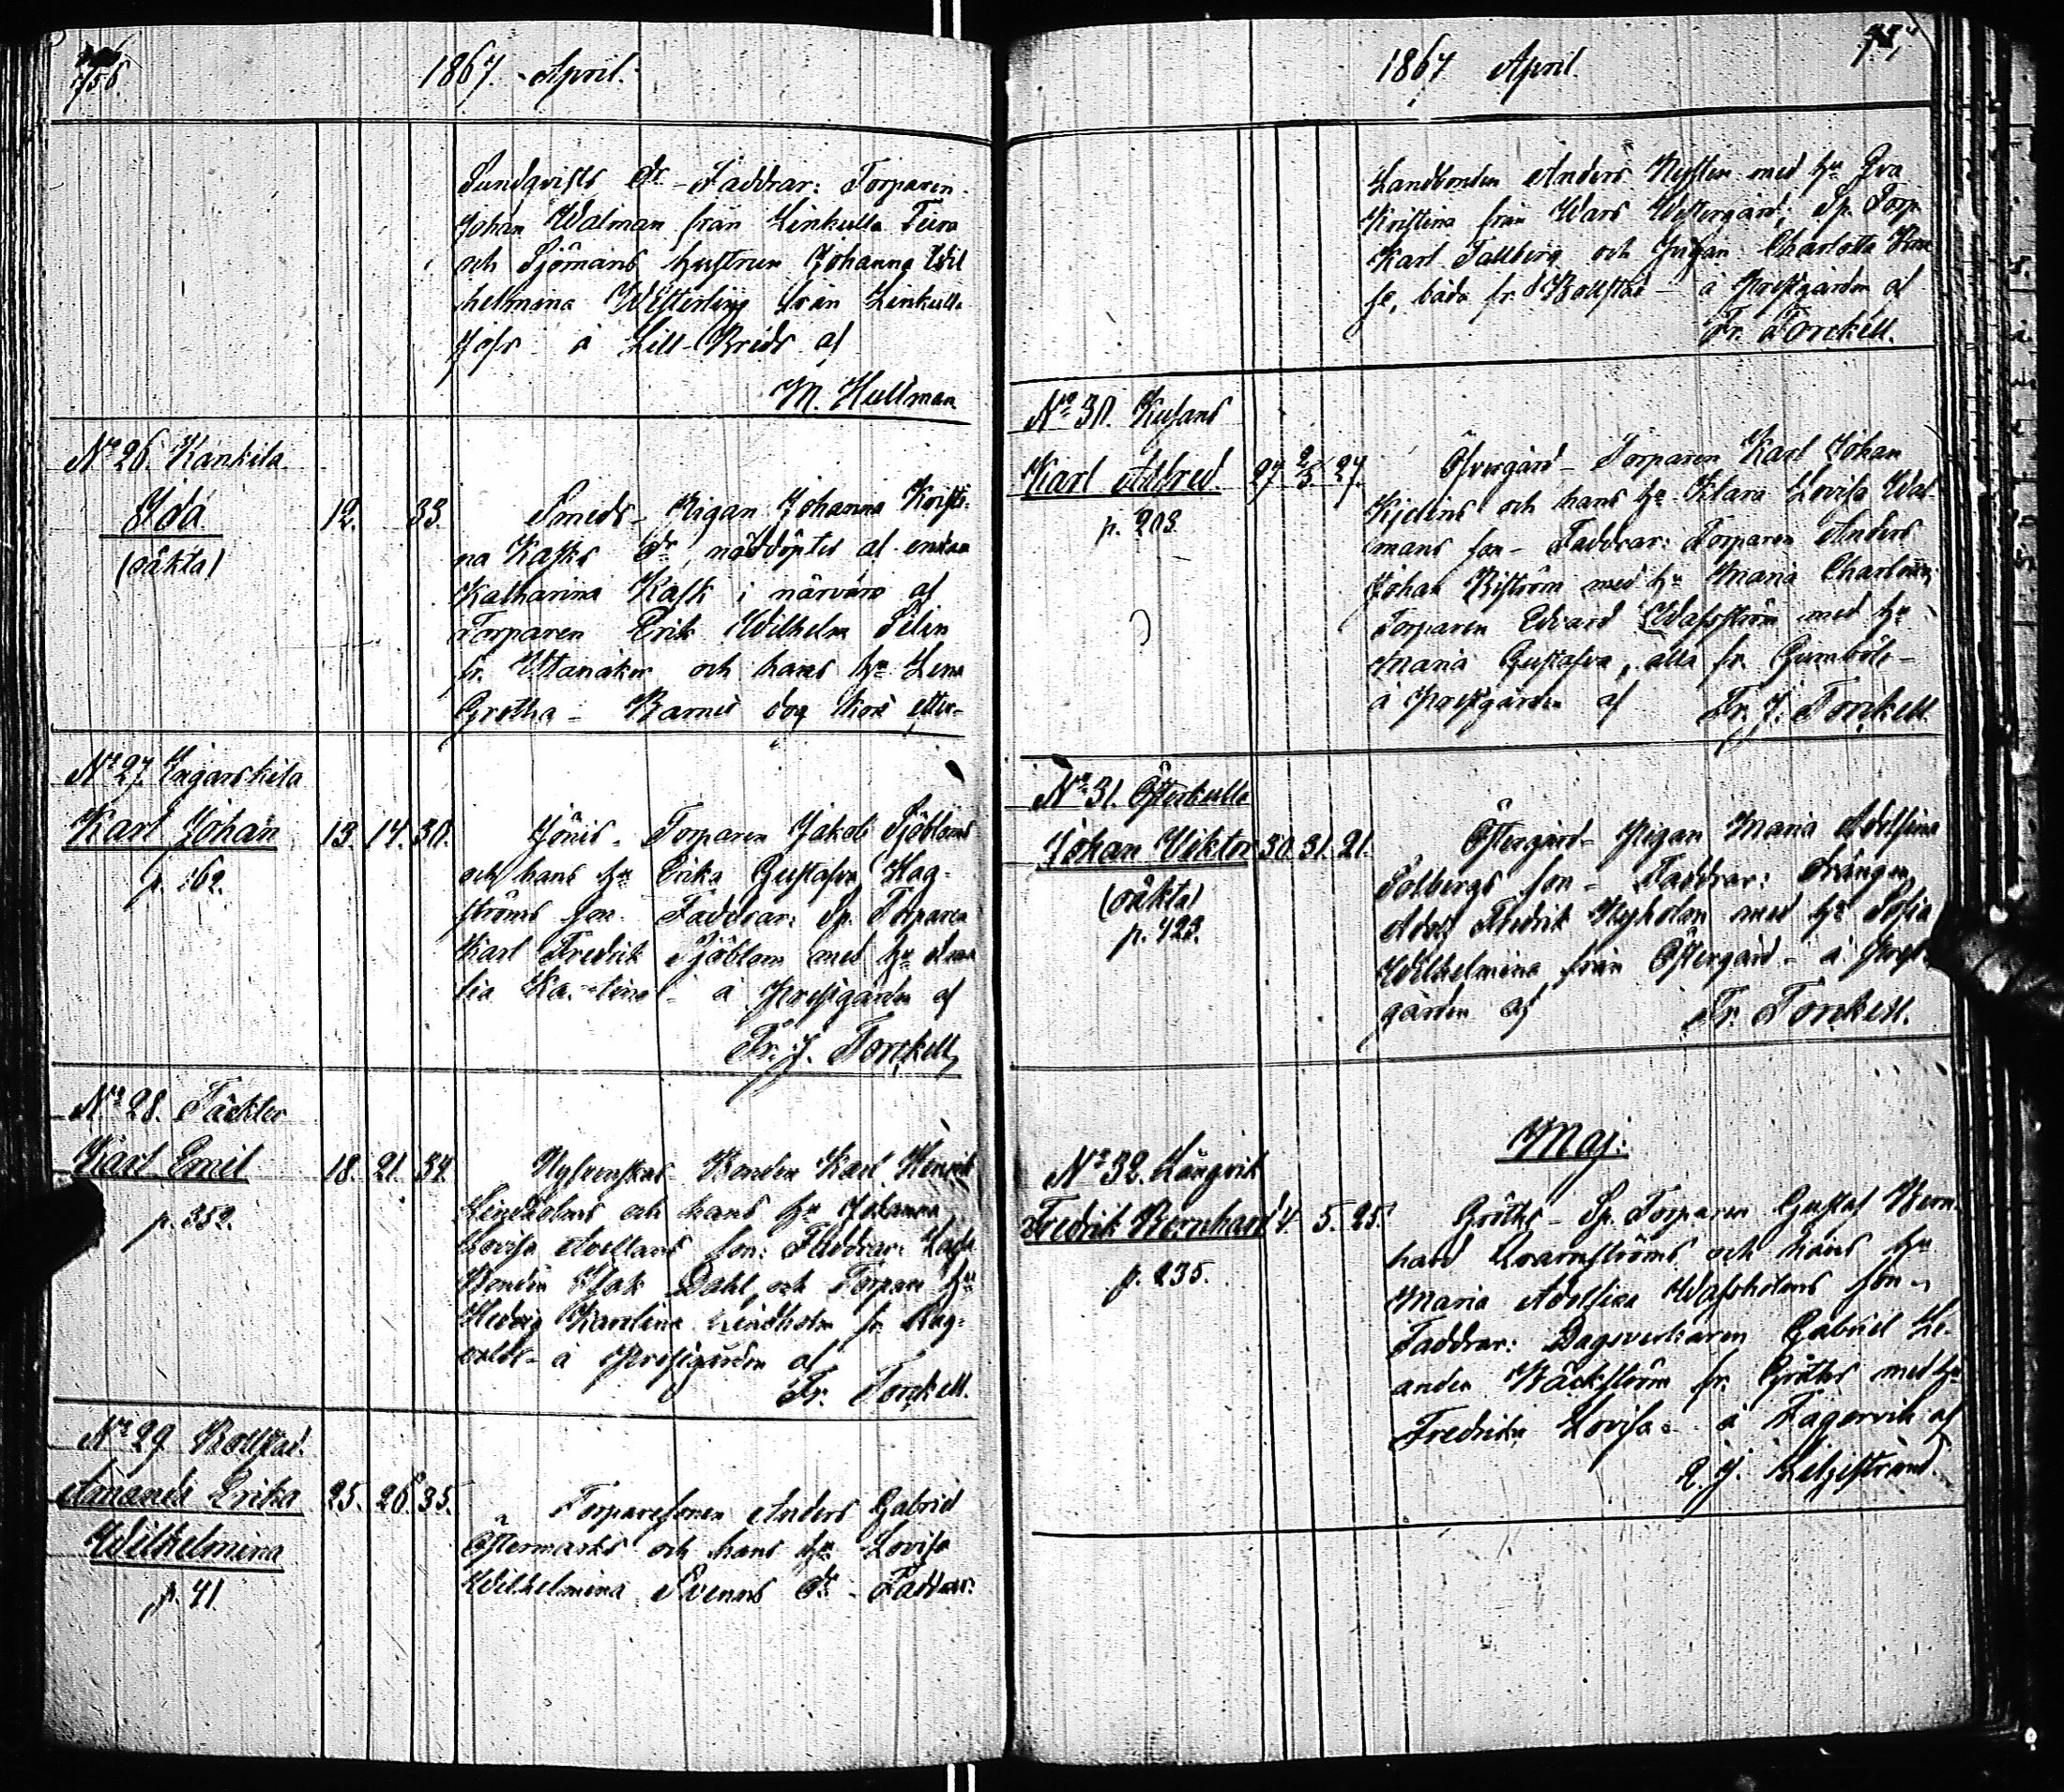 756.
1867. April.
Sundqvists dr – Faddrar: Torparen
Johan Walman från Linkulla Teira
och Sjömans hustrun Johanna Wil
helmina Westerling från Linkulla
Jofs å Lill-Breds af
M. Hultman
No 26. Kankila
Ida 12. 33. Smeds – Pigan Johanna Kristi-
(oäkta) na Kasks dr, nöddöptes af enkan
Katharina Kask i närvaro af
Torparen Erik Wilhelm Selin
fr. Utanåker och hans hu Lena
Gretha – Barnet dog kort efter
No 27. Ingarskila
Karl Johan 13. 14. 30. Jönis – Torparen Jakob Sjöbloms
p. 162. och hans hu Erika Gustafva Hag-
ströms son – Faddrar: Sp. Torparen
Karl Fredrik Sjöblom med hu Ama
lia – å Prestgården af
Fr. J. Torckell
No 28. Täckter
Karl Emil 18. 21. 34. Nysvenskas – Bonden Karl Henrik
p. 352. Lindholms och hans hu Johanna
Lovisa Avellans son: Faddrar:
Bonden Isak Dahl och Torpare hu
Hedvig Karolina Lindholm fr. Rag-
valds – å Prestgården af
Fr. Torckell.
No 29 Bollstad.
Amanda Erika 25. 26. 35. Torparesonen Anders Gabriel
Wilhelmina Östermarks och hans hu Lovisa
p. 41. Wilhelmina Svenns dr – Faddrar:
1867 April.
Landbonden Anders Nysten med hu Eva
Kristina från Wars Westergård, Sp. Torp.
Karl Tallberg och Pigan Charlotta
båda fr. Bollstad – å Prestgården af
Fr. Torckell.
No 30. Kusans
Karl Alfred. 27 28 27. Öfvergård – Torparen Karl Johan
p. 203. Kjelins och hans hu Klara Lovisa Wal-
mans son – Faddrar: Torparen Anders
Johan Riström med hu Maria Charlotta,
Torparen Edvard Wasström med hu
Maria Gustafva, alla fr. Gumböle –
å Prestgården af Fr. J. Torckell.
No 31. Österkulla
Johan Viktor 30. 31. 21. Östergård – Pigan Maria Adolfina
(oäkta) Solbergs son – Faddrar: Drängen
p. 423. Adolf Fredrik Nyholm med hu Sofia
Wilhelmina från Östergård – å Prest-
gården af Fr. Torckell.
Maj.
No 32. Långvik
Fredrik Bernhard 4. 5. 25. Gröths – Sp. Torparen Gustaf Bern-
p. 235. hard Qvarnströms och hans hu
Maria Adolfina Wassholms son –
Faddrar: Dagsverkaren Gabriel Le-
ander Bäckström fr. Gröths med hu
Fredrika Lovisa – å Fagervik af
Liljestrand.